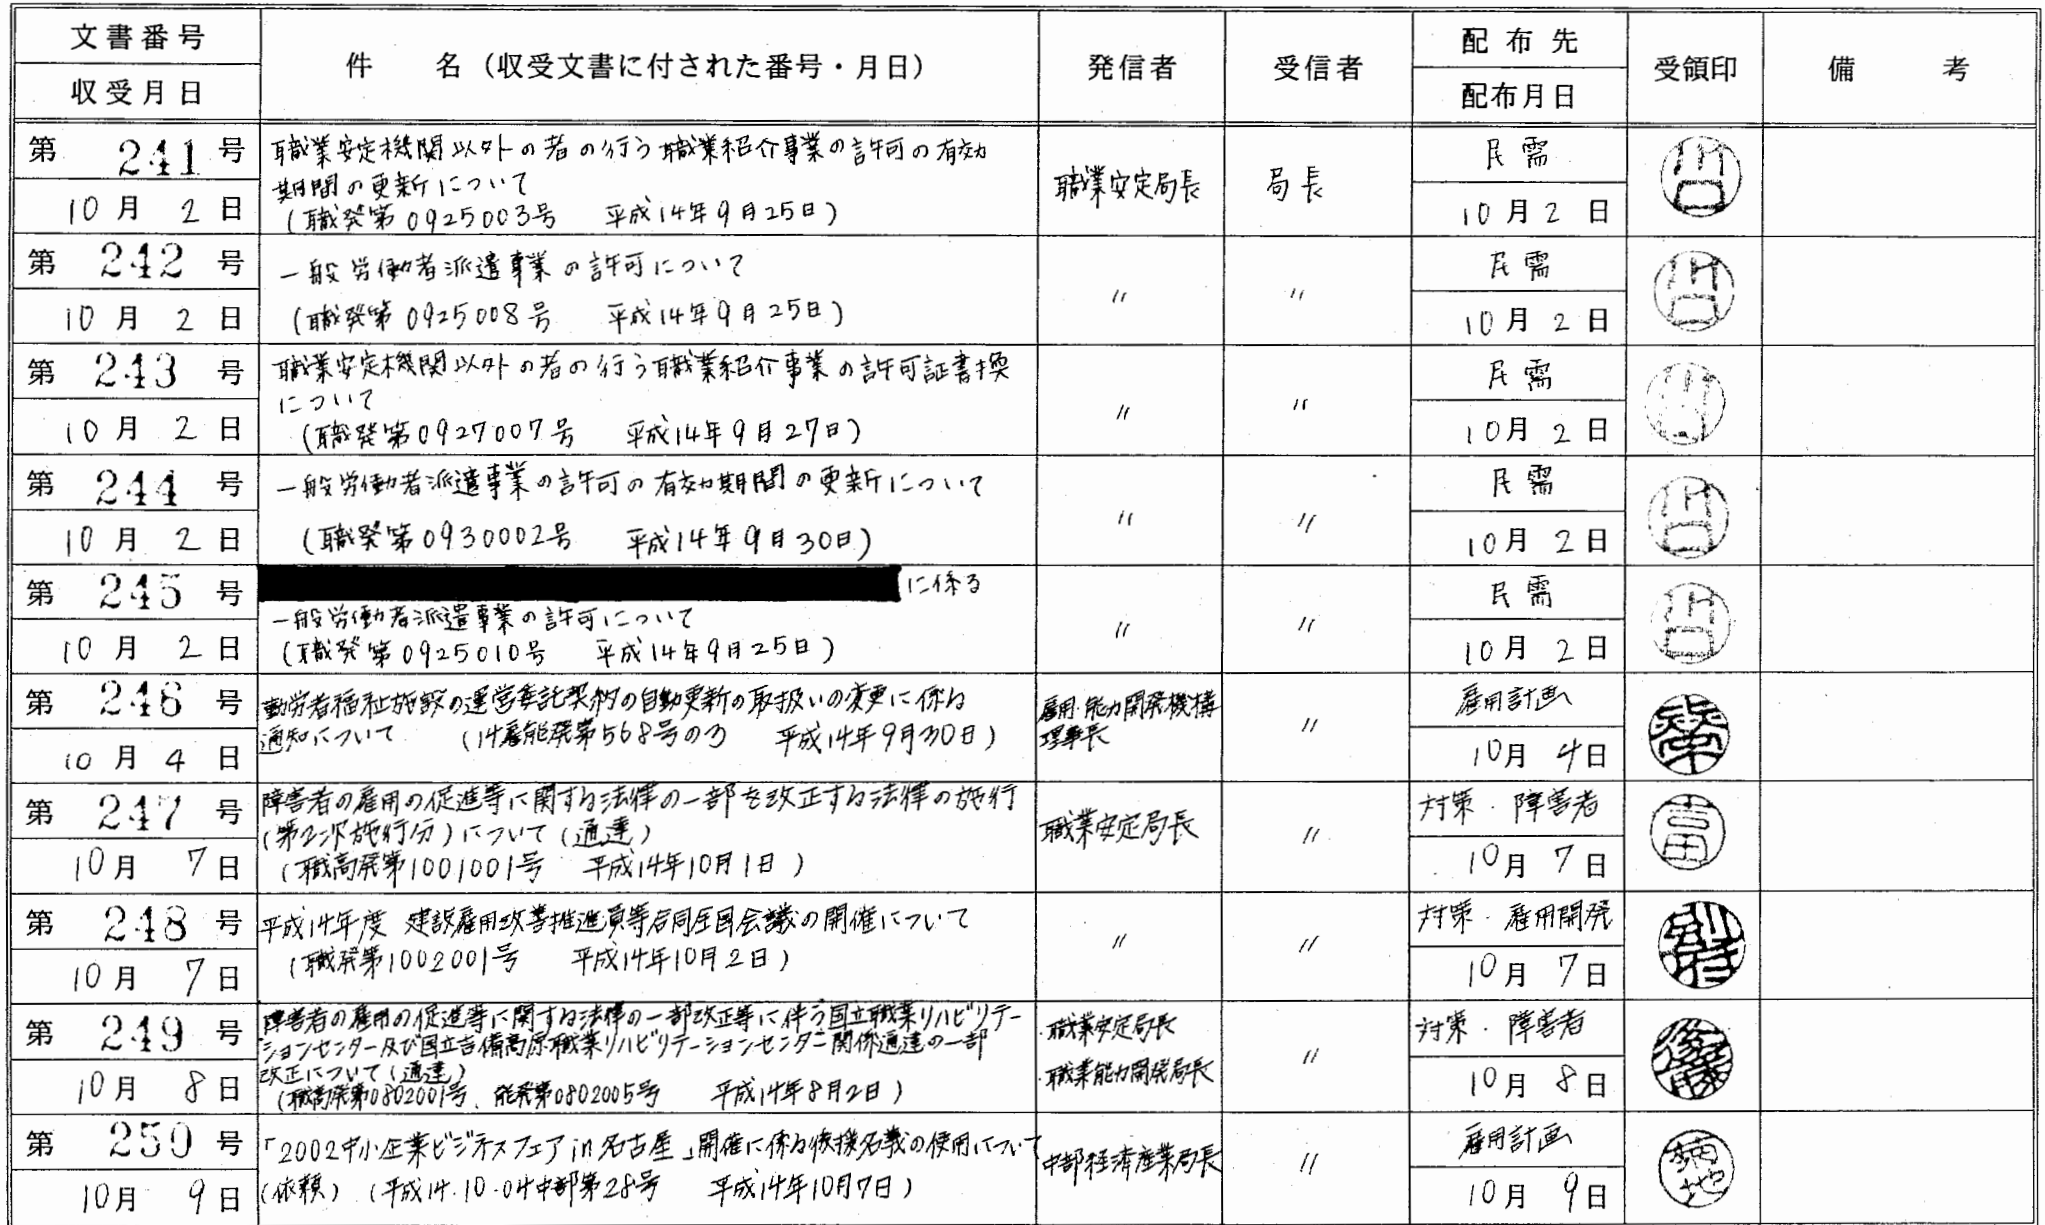 文書番号
収受月日
件　　名（収受文書に付された番号・月日）
発信者
受信者
配布先
配布月日
受領印
備　　考
第 241 号
10月 2日
職業安定機関以外の者の行う職業紹介事業の許可の有効
期間の更新について
（職発第0925003号　平成14年9月25日）
職業安定局長
局長
民需
10月2日
川口
第 242 号
10月 2日
一般労働者派遣事業の許可について
（職発第0925008号　平成14年9月25日）
〃
〃
民需
10月2日
川口
第 243 号
10月 2日
職業安定機関以外の者の行う職業紹介事業の許可証書換
について
（職発第0927007号　平成14年9月27日）
〃
〃
民需
10月2日
川口
第 244 号
10月 2日
一般労働者派遣事業の許可の有効期間の更新について
（職発第0930002号　平成14年9月30日）
〃
〃
民需
10月2日
川口
第 245 号
10月 2日
に係る
一般労働者派遣事業の許可について
（職発第0925010号　平成14年9月25日）
〃
〃
民需
10月2日
川口
第 246 号
10月 4日
勤労者福祉施設の運営委託契約の自動更新の取扱いの変更に係る
通知について　（14雇能発第568号の3　平成14年9月30日）
雇用・能力開発機構
理事長
〃
雇用計画
10月4日
第 247 号
10月 7日
障害者の雇用の促進等に関する法律の一部を改正する法律の施行
（第2次施行分）について（通達）
（職高発第1001001号　平成14年10月1日）
職業安定局長
〃
対策・障害者
10月7日
吉田
第 248 号
10月 7日
平成14年度 建設雇用改善推進員等合同全国会議の開催について
（職発第1002001号　平成14年10月2日）
〃
〃
対策・雇用開発
10月7日
別府
第 249 号
10月 8日
障害者の雇用の促進等に関する法律の一部改正等に伴う国立職業リハビリテー
ションセンター及び国立吉備高原職業リハビリテーションセンター関係通達の一部
改正について（通達）
（職高発第0802001号、能発第0802005号　平成14年8月2日）
・職業安定局長
・職業能力開発局長
〃
対策・障害者
10月8日
後藤
第 250 号
10月 9日
「2002中小企業ビジネスフェアin名古屋」開催に係る後援名義の使用について
（依頼）（平成14.10.04中部第28号　平成14年10月7日）
中部経済産業局長
〃
雇用計画
10月9日
菊地